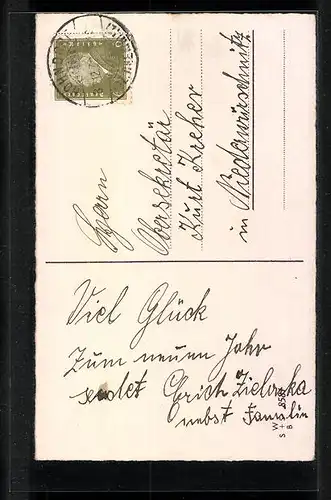 Herrn
Obersekretär
Kurt Kreher
in Niederwürschnitz
Viel Glück
Zum neuen Jahr
sendet Erich
nebst Familie
W
S + B